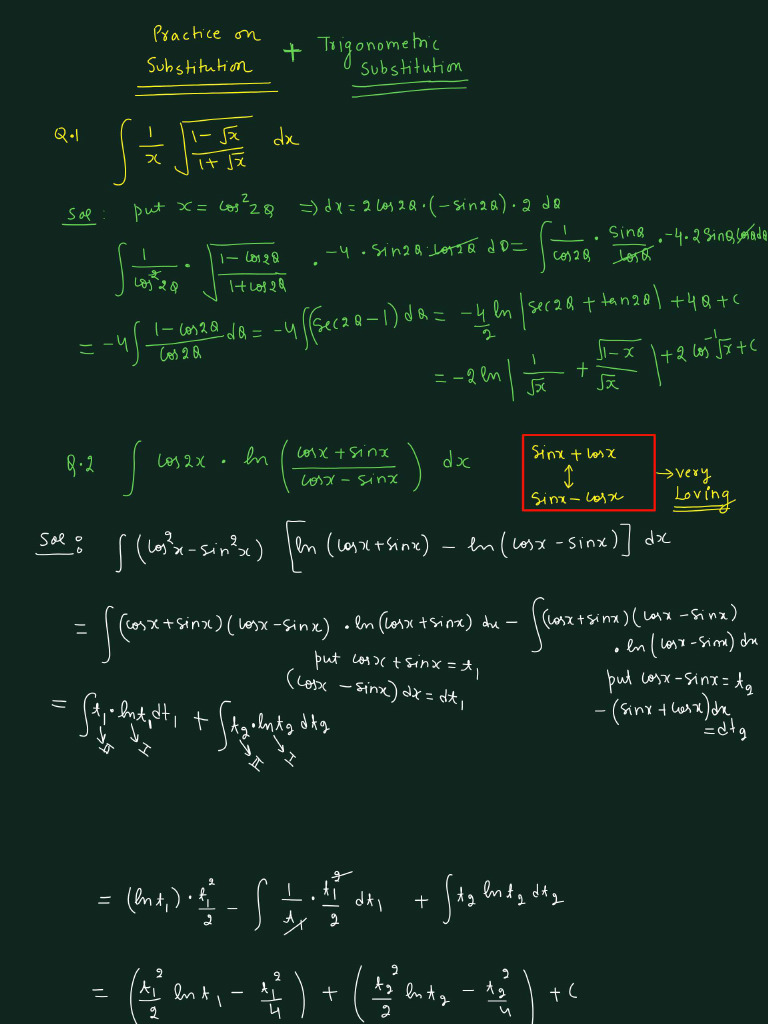 Practice on Substitution + Trigonometric Substitution
Q.1 ∫ 1/x √((1-√x)/(1+√x)) dx
Sol: put x = cos²2θ ⇒ dx = 2 cos2θ·(-sin2θ)·2 dθ
∫ 1/cos²2θ · √((1-cos2θ)/(1+cos2θ)) · -4·sin2θ·cos2θ dθ = ∫ 1/cos2θ · sinθ/cosθ · -4·2 sinθ cosθ dθ
= -4∫ (1-cos2θ)/cos2θ dθ = -4∫(sec2θ-1) dθ = -4/2 ln|sec2θ + tan2θ| + 4θ + C
= -2 ln| 1/√x + √(1-x)/√x | + 2 cos⁻¹√x + C
Q.2 ∫ cos2x · ln((cosx + sinx)/(cosx - sinx)) dx
sinx + cosx
↕
sinx - cosx
→ very Loving
Sol: ∫(cos²x - sin²x) [ln(cosx + sinx) - ln(cosx - sinx)] dx
= ∫(cosx + sinx)(cosx - sinx) · ln(cosx + sinx) dx - ∫(cosx + sinx)(cosx - sinx) · ln(cosx - sinx) dx
put cosx + sinx = t₁
(cosx - sinx) dx = dt₁
put cosx - sinx = t₂
-(sinx + cosx) dx = dt₂
= ∫ t₁·ln t₁ dt₁ + ∫ t₂·ln t₂ dt₂
II I II I
= (ln t₁)·t₁²/2 - ∫ 1/t₁ · t₁²/2 dt₁ + ∫ t₂ ln t₂ dt₂
= (t₁²/2 ln t₁ - t₁²/4) + (t₂²/2 ln t₂ - t₂²/4) + C